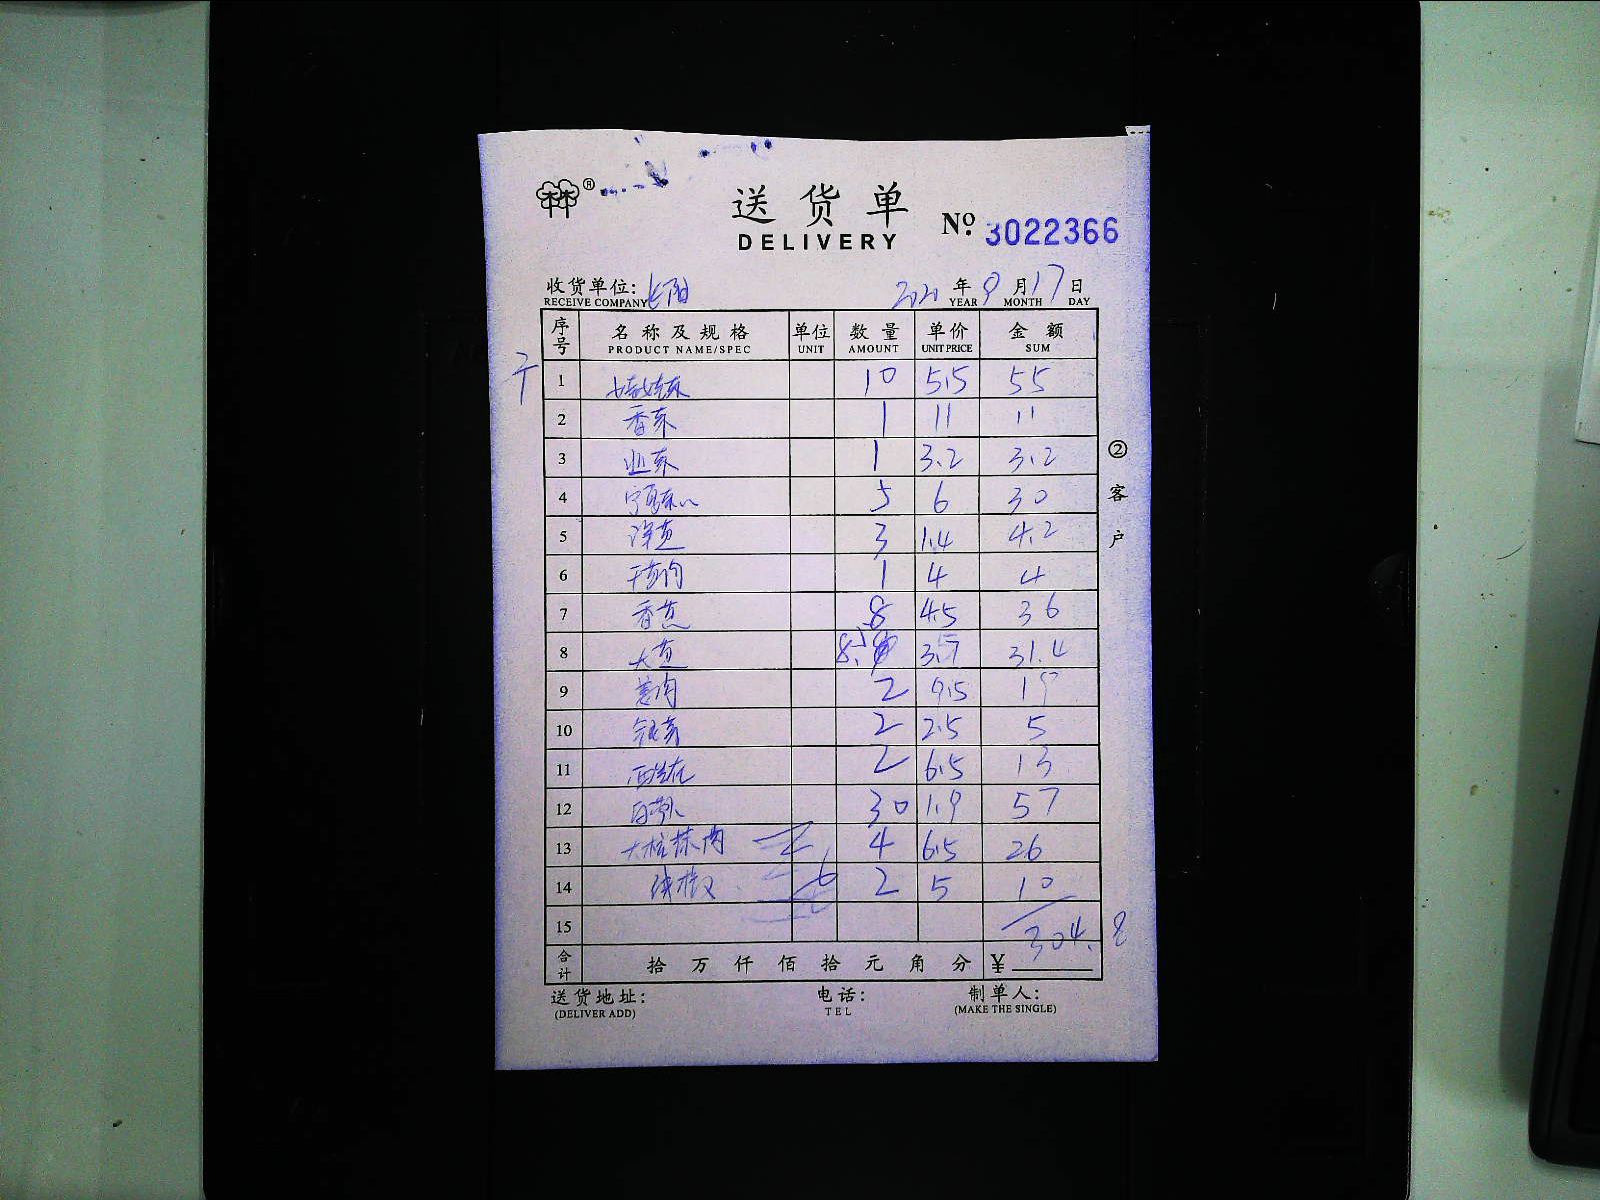 ®
送货单
DELIVERY
№ 3022366
收货单位:
RECEIVE COMPANY
2020 年 9 月 17 日
YEAR MONTH DAY
序号 名称及规格 单位 数量 单价 金额
PRODUCT NAME/SPEC UNIT AMOUNT UNIT PRICE SUM
1 娃娃菜 10 5.5 55
2 香菜 1 11 11
3 3.2 3.2
4 5 6 30
5 洋芋 3 1.4 4.2
6 1 4 4
7 香 8 4.5 36
8 大 8.5 3.7 31.4
9 2 9.5 19
10 银芽 2 2.5 5
11 2 6.5 13
12 30 1.9 57
13 大 肉 4 6.5 26
14 线椒 2 5 10
15
304.8
合计 拾 万 仟 佰 拾 元 角 分 ¥
送货地址: 电话: 制单人:
(DELIVER ADD) TEL (MAKE THE SINGLE)
②客户